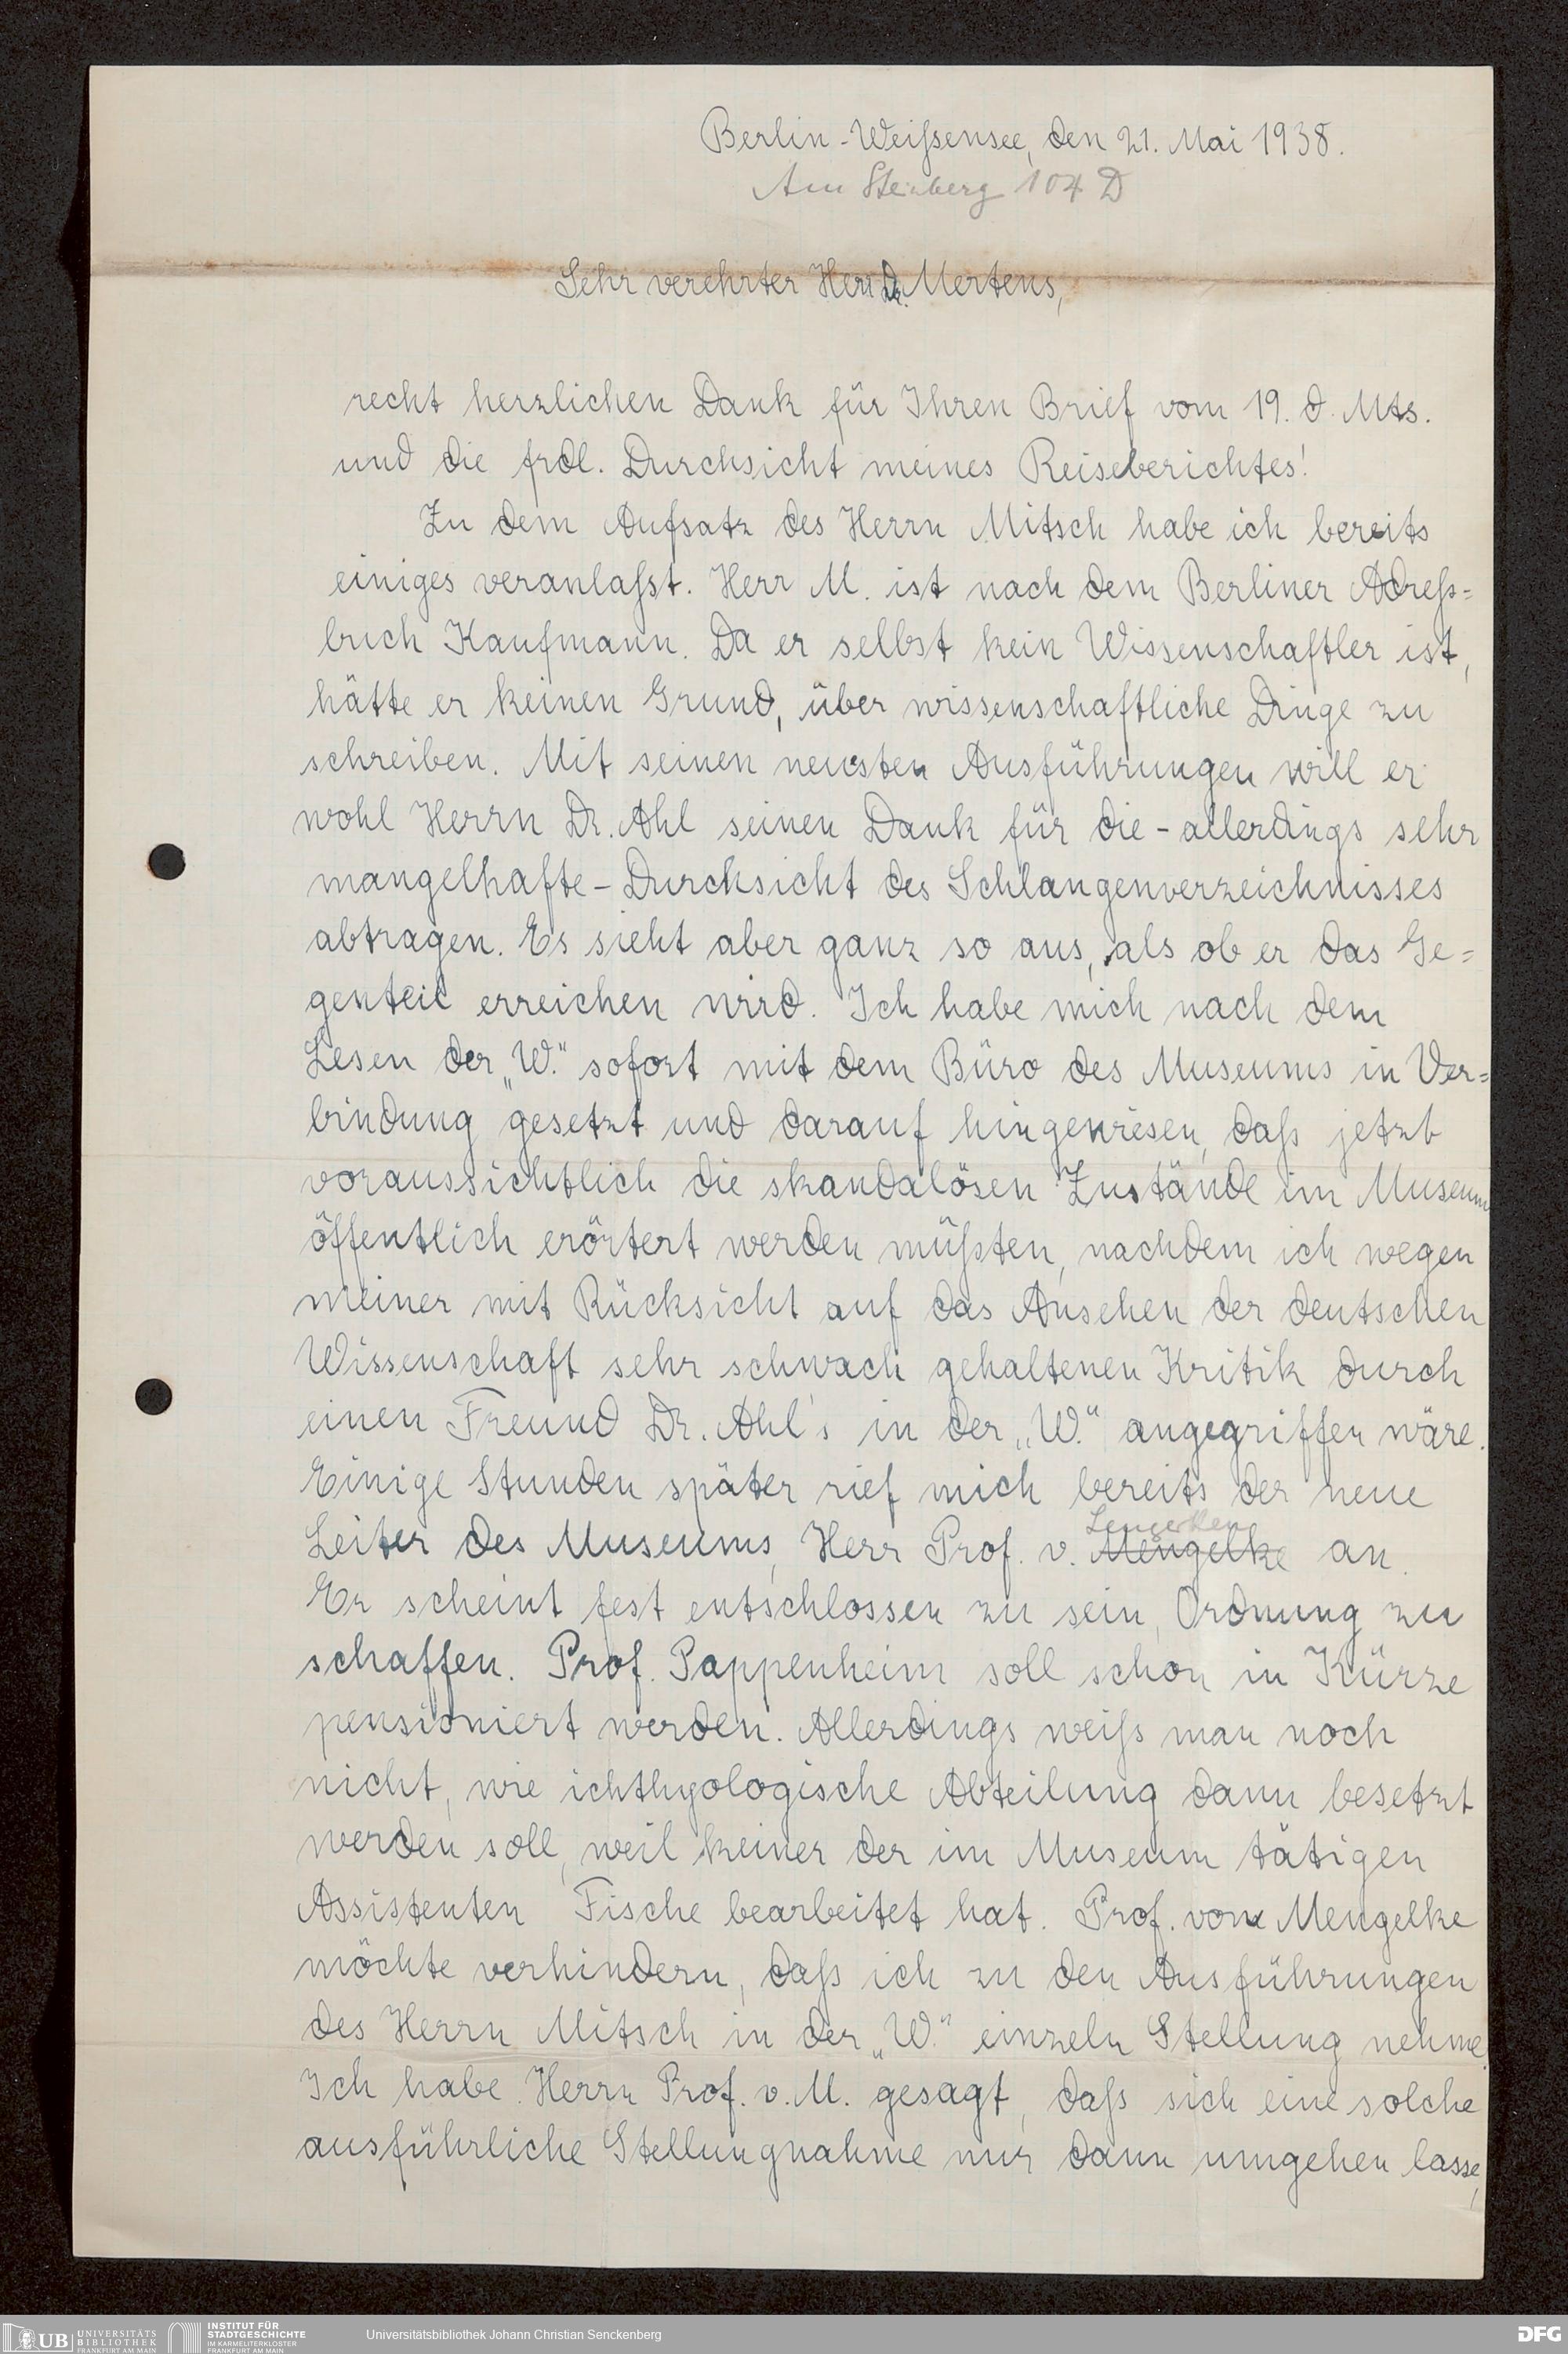 Berlin-Weißensee, den 21. Mai 1938.
Am Steinberg 104 D
Sehr verehrter Herr Dr. Mertens,
recht herzlichen Dank für Ihren Brief vom 19. d. Mts.
und die frdl. Durchsicht meines Reiseberichtes!
Zu dem Aufsatz des Herrn Mitsch habe ich bereits
einiges veranlaßt. Herr M. ist nach dem Berliner Adreß=
buch Kaufmann. Da er selbst kein Wissenschaftler ist,
hätte er keinen Grund, über wissenschaftliche Dinge zu
schreiben. Mit seinen neusten Ausführungen will er
wohl Herrn Dr. Ahl seinen Dank für die - allerdings sehr
mangelhafte - Durchsicht des Schlangenverzeichnisses
abtragen. Es sieht aber ganz so aus, als ob er das Ge=
genteil erreichen wird. Ich habe mich nach dem
Lesen der „W." sofort mit dem Büro des Museums in Ver=
bindung gesetzt und darauf hingewiesen, daß jetzt
voraussichtlich die skandalösen Zustände im Museum
öffentlich erörtert werden müßten, nachdem ich wegen
meiner mit Rücksicht auf das Ansehen der deutschen
Wissenschaft sehr schwach gehaltenen Kritik durch
einen Freund Dr. Ahl's in der „W." angegriffen wäre.
Einige Stunden später rief mich bereits der neue
Lengerken
Leiter des Museums, Herr Prof. v. Mengelke an.
Er scheint fest entschlossen zu sein, Ordnung zu
schaffen. Prof. Pappenheim soll schon in Kürze
pensioniert werden. Allerdings weiß man noch
nicht, wie ichthyologische Abteilung dann besetzt
werden soll, weil keiner der im Museum tätigen
Assistenten Fische bearbeitet hat. Prof. von Mengelke
möchte verhindern, daß ich zu den Ausführungen
des Herrn Mitsch in der „W." einzeln Stellung nehme.
Ich habe Herrn Prof. v. M. gesagt, daß sich eine solche
ausführliche Stellungnahme nur dann umgehen lasse,
UB UNIVERSITÄTS
BIBLIOTHEK
FRANKFURT AM MAIN
INSTITUT FÜR
STADTGESCHICHTE
IM KARMELITERKLOSTER
FRANKFURT AM MAIN
Universitätsbibliothek Johann Christian Senckenberg
DFG